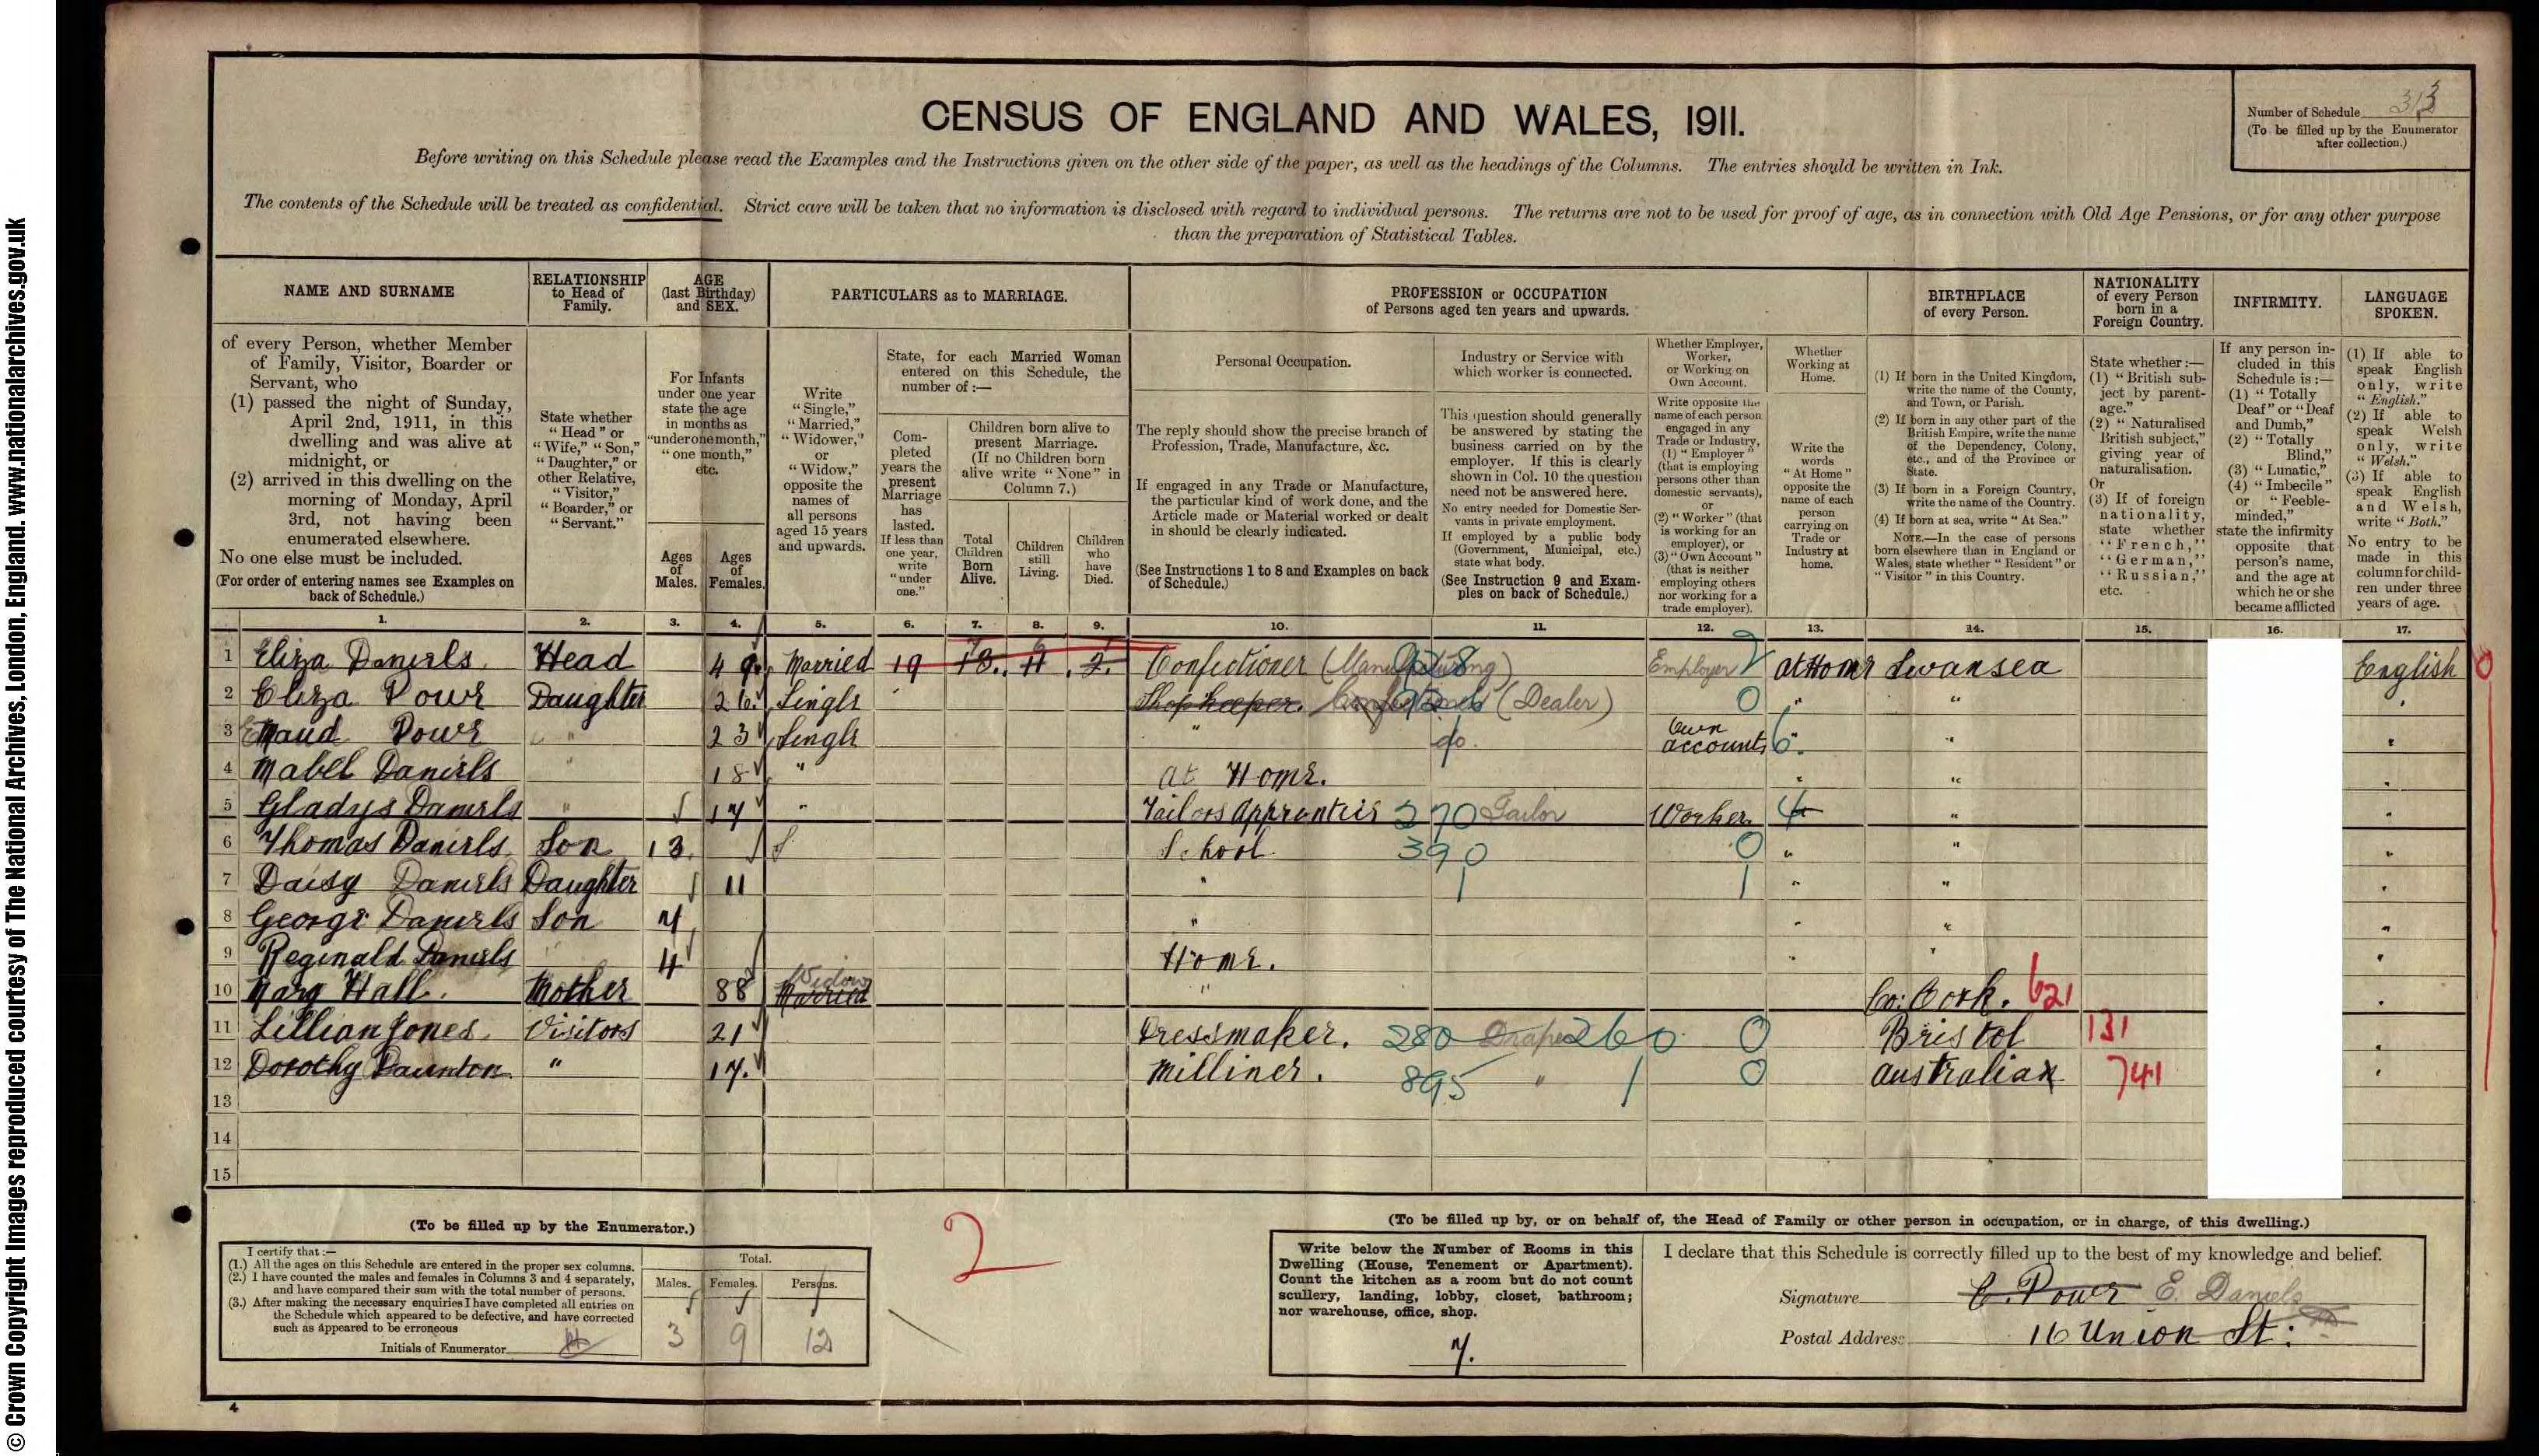 © Crown Copyright Images reproduced courtesy of The National Archives, London, England. www.nationalarchives.gov.uk
CENSUS OF ENGLAND AND WALES, 1911.
Number of Schedule 313
(To be filled up by the Enumerator after collection.)
Before writing on this Schedule please read the Examples and the Instructions given on the other side of the paper, as well as the headings of the Columns. The entries should be written in Ink.
The contents of the Schedule will be treated as confidential. Strict care will be taken that no information is disclosed with regard to individual persons. The returns are not to be used for proof of age, as in connection with Old Age Pensions, or for any other purpose
than the preparation of Statistical Tables.
NAME AND SURNAME
of every Person, whether Member
of Family, Visitor, Boarder or
Servant, who
(1) passed the night of Sunday,
April 2nd, 1911, in this
dwelling and was alive at
midnight, or
(2) arrived in this dwelling on the
morning of Monday, April
3rd, not having been
enumerated elsewhere.
No one else must be included.
(For order of entering names see Examples on
back of Schedule.)
RELATIONSHIP
to Head of
Family.
State whether
"Head" or
"Wife," "Son,"
"Daughter," or
other Relative,
"Visitor,"
"Boarder," or
"Servant."
AGE
(last Birthday)
and SEX.
For Infants
under one year
state the age
in months as
"under one month,"
"one month,"
etc.
Ages
of
Males.
Ages
of
Females.
PARTICULARS as to MARRIAGE.
Write
"Single,"
"Married,"
"Widower,"
or
"Widow,"
opposite the
names of
all persons
aged 15 years
and upwards.
State, for each Married Woman
entered on this Schedule, the
number of :—
Com-
pleted
years the
present
Marriage
has
lasted.
If less than
one year,
write
"under
one."
Children born alive to
present Marriage.
(If no Children born
alive write "None" in
Column 7.)
Total
Children
Born
Alive.
Children
still
Living.
Children
who
have
Died.
PROFESSION or OCCUPATION
of Persons aged ten years and upwards.
Personal Occupation.
The reply should show the precise branch of
Profession, Trade, Manufacture, &c.
If engaged in any Trade or Manufacture,
the particular kind of work done, and the
Article made or Material worked or dealt
in should be clearly indicated.
(See Instructions 1 to 8 and Examples on back
of Schedule.)
Industry or Service with
which worker is connected.
This question should generally
be answered by stating the
business carried on by the
employer. If this is clearly
shown in Col. 10 the question
need not be answered here.
No entry needed for Domestic Ser-
vants in private employment.
If employed by a public body
(Government, Municipal, etc.)
state what body.
(See Instruction 9 and Exam-
ples on back of Schedule.)
Whether Employer,
Worker,
or Working on
Own Account.
Write opposite the
name of each person
engaged in any
Trade or Industry,
(1) "Employer"
(that is employing
persons other than
domestic servants),
or
(2) "Worker" (that
is working for an
employer), or
(3) "Own Account"
(that is neither
employing others
nor working for a
trade employer).
Whether
Working at
Home.
Write the
words
"At Home"
opposite the
name of each
person
carrying on
Trade or
Industry at
home.
BIRTHPLACE
of every Person.
(1) If born in the United Kingdom,
write the name of the County,
and Town, or Parish.
(2) If born in any other part of the
British Empire, write the name
of the Dependency, Colony,
etc., and of the Province or
State.
(3) If born in a Foreign Country,
write the name of the Country.
(4) If born at sea, write "At Sea."
NOTE.—In the case of persons
born elsewhere than in England or
Wales, state whether "Resident" or
"Visitor" in this Country.
NATIONALITY
of every Person
born in a
Foreign Country.
State whether :—
(1) "British sub-
ject by parent-
age."
(2) "Naturalised
British subject,"
giving year of
naturalisation.
Or
(3) If of foreign
nationality,
state whether
"French,"
"German,"
"Russian,"
etc.
INFIRMITY.
If any person in-
cluded in this
Schedule is :—
(1) "Totally
Deaf" or "Deaf
and Dumb,"
(2) "Totally
Blind,"
(3) "Lunatic,"
(4) "Imbecile"
or "Feeble-
minded,"
state the infirmity
opposite that
person's name,
and the age at
which he or she
became afflicted
LANGUAGE
SPOKEN.
(1) If able to
speak English
only, write
"English."
(2) If able to
speak Welsh
only, write
"Welsh."
(3) If able to
speak English
and Welsh,
write "Both."
No entry to be
made in this
column for child-
ren under three
years of age.
1. 2. 3. 4. 5. 6. 7. 8. 9. 10. 11. 12. 13. 14. 15. 16. 17.
1 Eliza Daniels Head 49 Married 19 13 11 2 Confectioner (Manufacturing) 928 Employer at Home Swansea English 0
2 Eliza Power Daughter 26 Single Shopkeeper. (Dealer) 0 " "
3 Maud Power " 23 Single " do. Own account 6 " "
4 Mabel Daniels " 18 " At Home. " "
5 Gladys Daniels " 17 " Tailors Apprentice 270 Tailor Worker. 4 "
6 Thomas Daniels Son 13 S School 390 0 " "
7 Daisy Daniels Daughter 11 " 1 1 " "
8 George Daniels Son 7 " " "
9 Reginald Daniels " 4 Home. " "
10 Mary Hall. Mother 88 Widow Married " Co: Cork. 621
11 Lillian Jones. Visitors 21 Dressmaker. 280 Draper 260 0 Bristol 131
12 Dorothy Daunton. " 17. Milliner. 895 " 1 0 Australia 741
13
14
15
(To be filled up by the Enumerator.)
I certify that :—
(1.) All the ages on this Schedule are entered in the proper sex columns.
(2.) I have counted the males and females in Columns 3 and 4 separately,
and have compared their sum with the total number of persons.
(3.) After making the necessary enquiries I have completed all entries on
the Schedule which appeared to be defective, and have corrected
such as appeared to be erroneous
Initials of Enumerator
Total.
Males. Females. Persons.
3 9 12
2
(To be filled up by, or on behalf of, the Head of Family or other person in occupation, or in charge, of this dwelling.)
Write below the Number of Rooms in this
Dwelling (House, Tenement or Apartment).
Count the kitchen as a room but do not count
scullery, landing, lobby, closet, bathroom;
nor warehouse, office, shop.
7.
I declare that this Schedule is correctly filled up to the best of my knowledge and belief.
Signature E. Power E. Daniels
Postal Address 16 Union St:
4